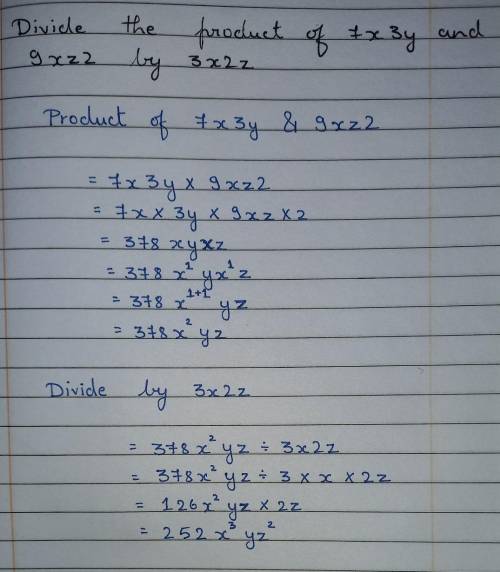 Divide the product of 7x3y and
9xz2 by 3x2z
Product of 7x3y & 9xz2
= 7x3y × 9xz2
= 7x × 3y × 9xz × 2
= 378 xyxz
= 378 x¹ yx¹ z
= 378 x¹⁺¹ yz
= 378x² yz
Divide by 3x2z
= 378x² yz ÷ 3x2z
= 378x² yz ÷ 3 × x × 2z
= 126x² yz × 2z
= 252x³ yz²